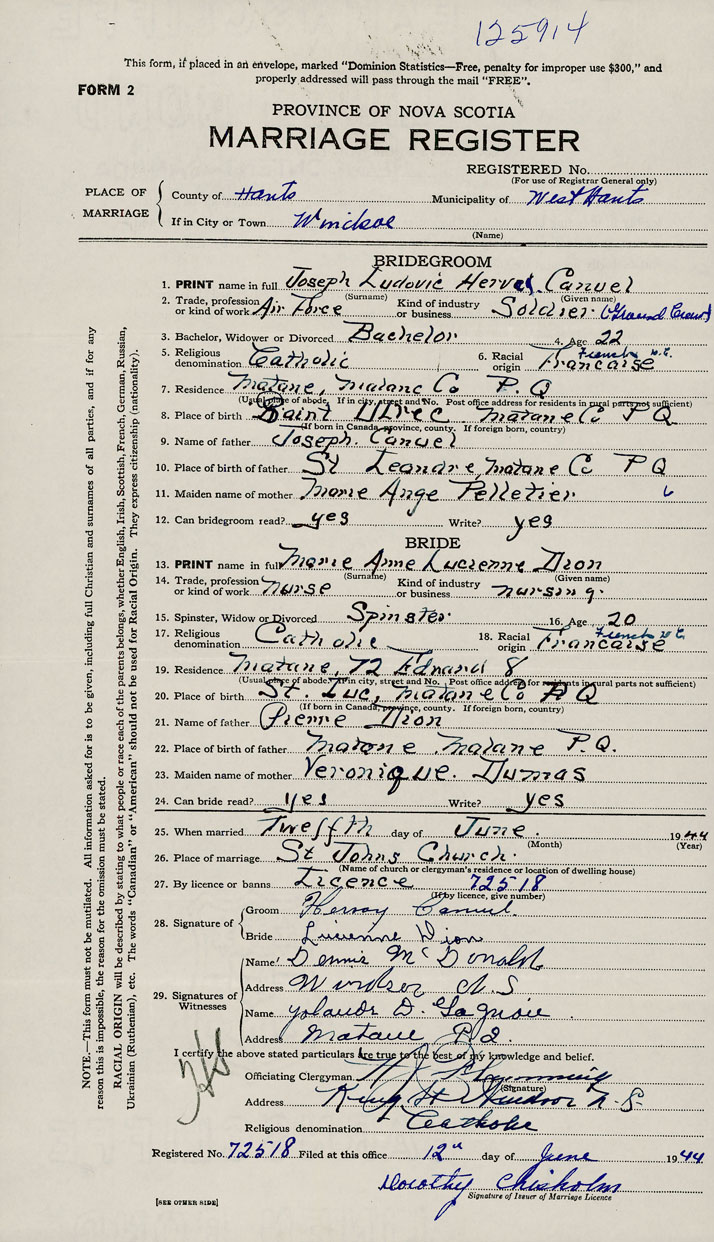 125914
This form, if placed in an envelope, marked "Dominion Statistics—Free, penalty for improper use $300," and
properly addressed will pass through the mail "FREE".
FORM 2
PROVINCE OF NOVA SCOTIA
MARRIAGE REGISTER
REGISTERED No.
(For use of Registrar General only)
PLACE OF MARRIAGE
County of Hants Municipality of West Hants
If in City or Town Windsor
(Name)
BRIDEGROOM
1. PRINT name in full Joseph Ludovic Herval Canuel
(Surname) (Given name)
2. Trade, profession or kind of work Air Force Kind of industry or business Soldier (Ground Crew)
3. Bachelor, Widower or Divorced Bachelor 4. Age 22
5. Religious denomination Catholic 6. Racial origin Francaise French
7. Residence Matane, Matane Co P.Q
(Usual place of abode. If in city, street and No. Post office address for residents in rural parts not sufficient)
8. Place of birth Saint Ulric Matane Co P Q
(If born in Canada, province, county. If foreign born, country)
9. Name of father Joseph. Canuel
10. Place of birth of father St Leandre, Matane Co P Q
11. Maiden name of mother Marie Ange Pelletier
12. Can bridegroom read? yes Write? yes
BRIDE
13. PRINT name in full Marie Anne Lucienne Dion
(Surname) (Given name)
14. Trade, profession or kind of work nurse Kind of industry or business nursing.
15. Spinster, Widow or Divorced Spinster 16. Age 20
17. Religious denomination Catholic 18. Racial origin Francaise French
19. Residence Matane, 72 8
(Usual place of abode. If in city, street and No. Post office address for residents in rural parts not sufficient)
20. Place of birth St. Luc, Matane Co P Q
(If born in Canada, province, county. If foreign born, country)
21. Name of father Pierre Dion
22. Place of birth of father Matane, Matane P.Q.
23. Maiden name of mother Veronique. Dumas
24. Can bride read? yes Write? yes
25. When married Twelfth day of June. 1944
(Month) (Year)
26. Place of marriage St Johns Church.
(Name of church or clergyman's residence or location of dwelling house)
27. By licence or banns Licence 72518
(If by licence, give number)
28. Signature of
Groom Hervay Canuel
Bride Lucienne Dion
29. Signatures of Witnesses
Name Dennis McDonald
Address Windsor N.S
Name Yolande D. Gagnon
Address Matane P.Q.
I certify the above stated particulars are true to the best of my knowledge and belief.
Officiating Clergyman
(Signature)
Address King St Windsor N.S.
Religious denomination Catholic
Registered No. 72518 Filed at this office 12th day of June 1944
Dorothy Chisholm
Signature of Issuer of Marriage Licence
[SEE OTHER SIDE]
NOTE.—This form must not be mutilated. All information asked for is to be given, including full Christian and surnames of all parties, and if for any
reason this is impossible, the reason for the omission must be stated.
RACIAL ORIGIN will be described by stating to what people or race each of the parents belongs, whether English, Irish, Scottish, French, German, Russian,
Ukrainian (Ruthenian), etc. The words "Canadian" or "American" should not be used for Racial Origin. They express citizenship (nationality).